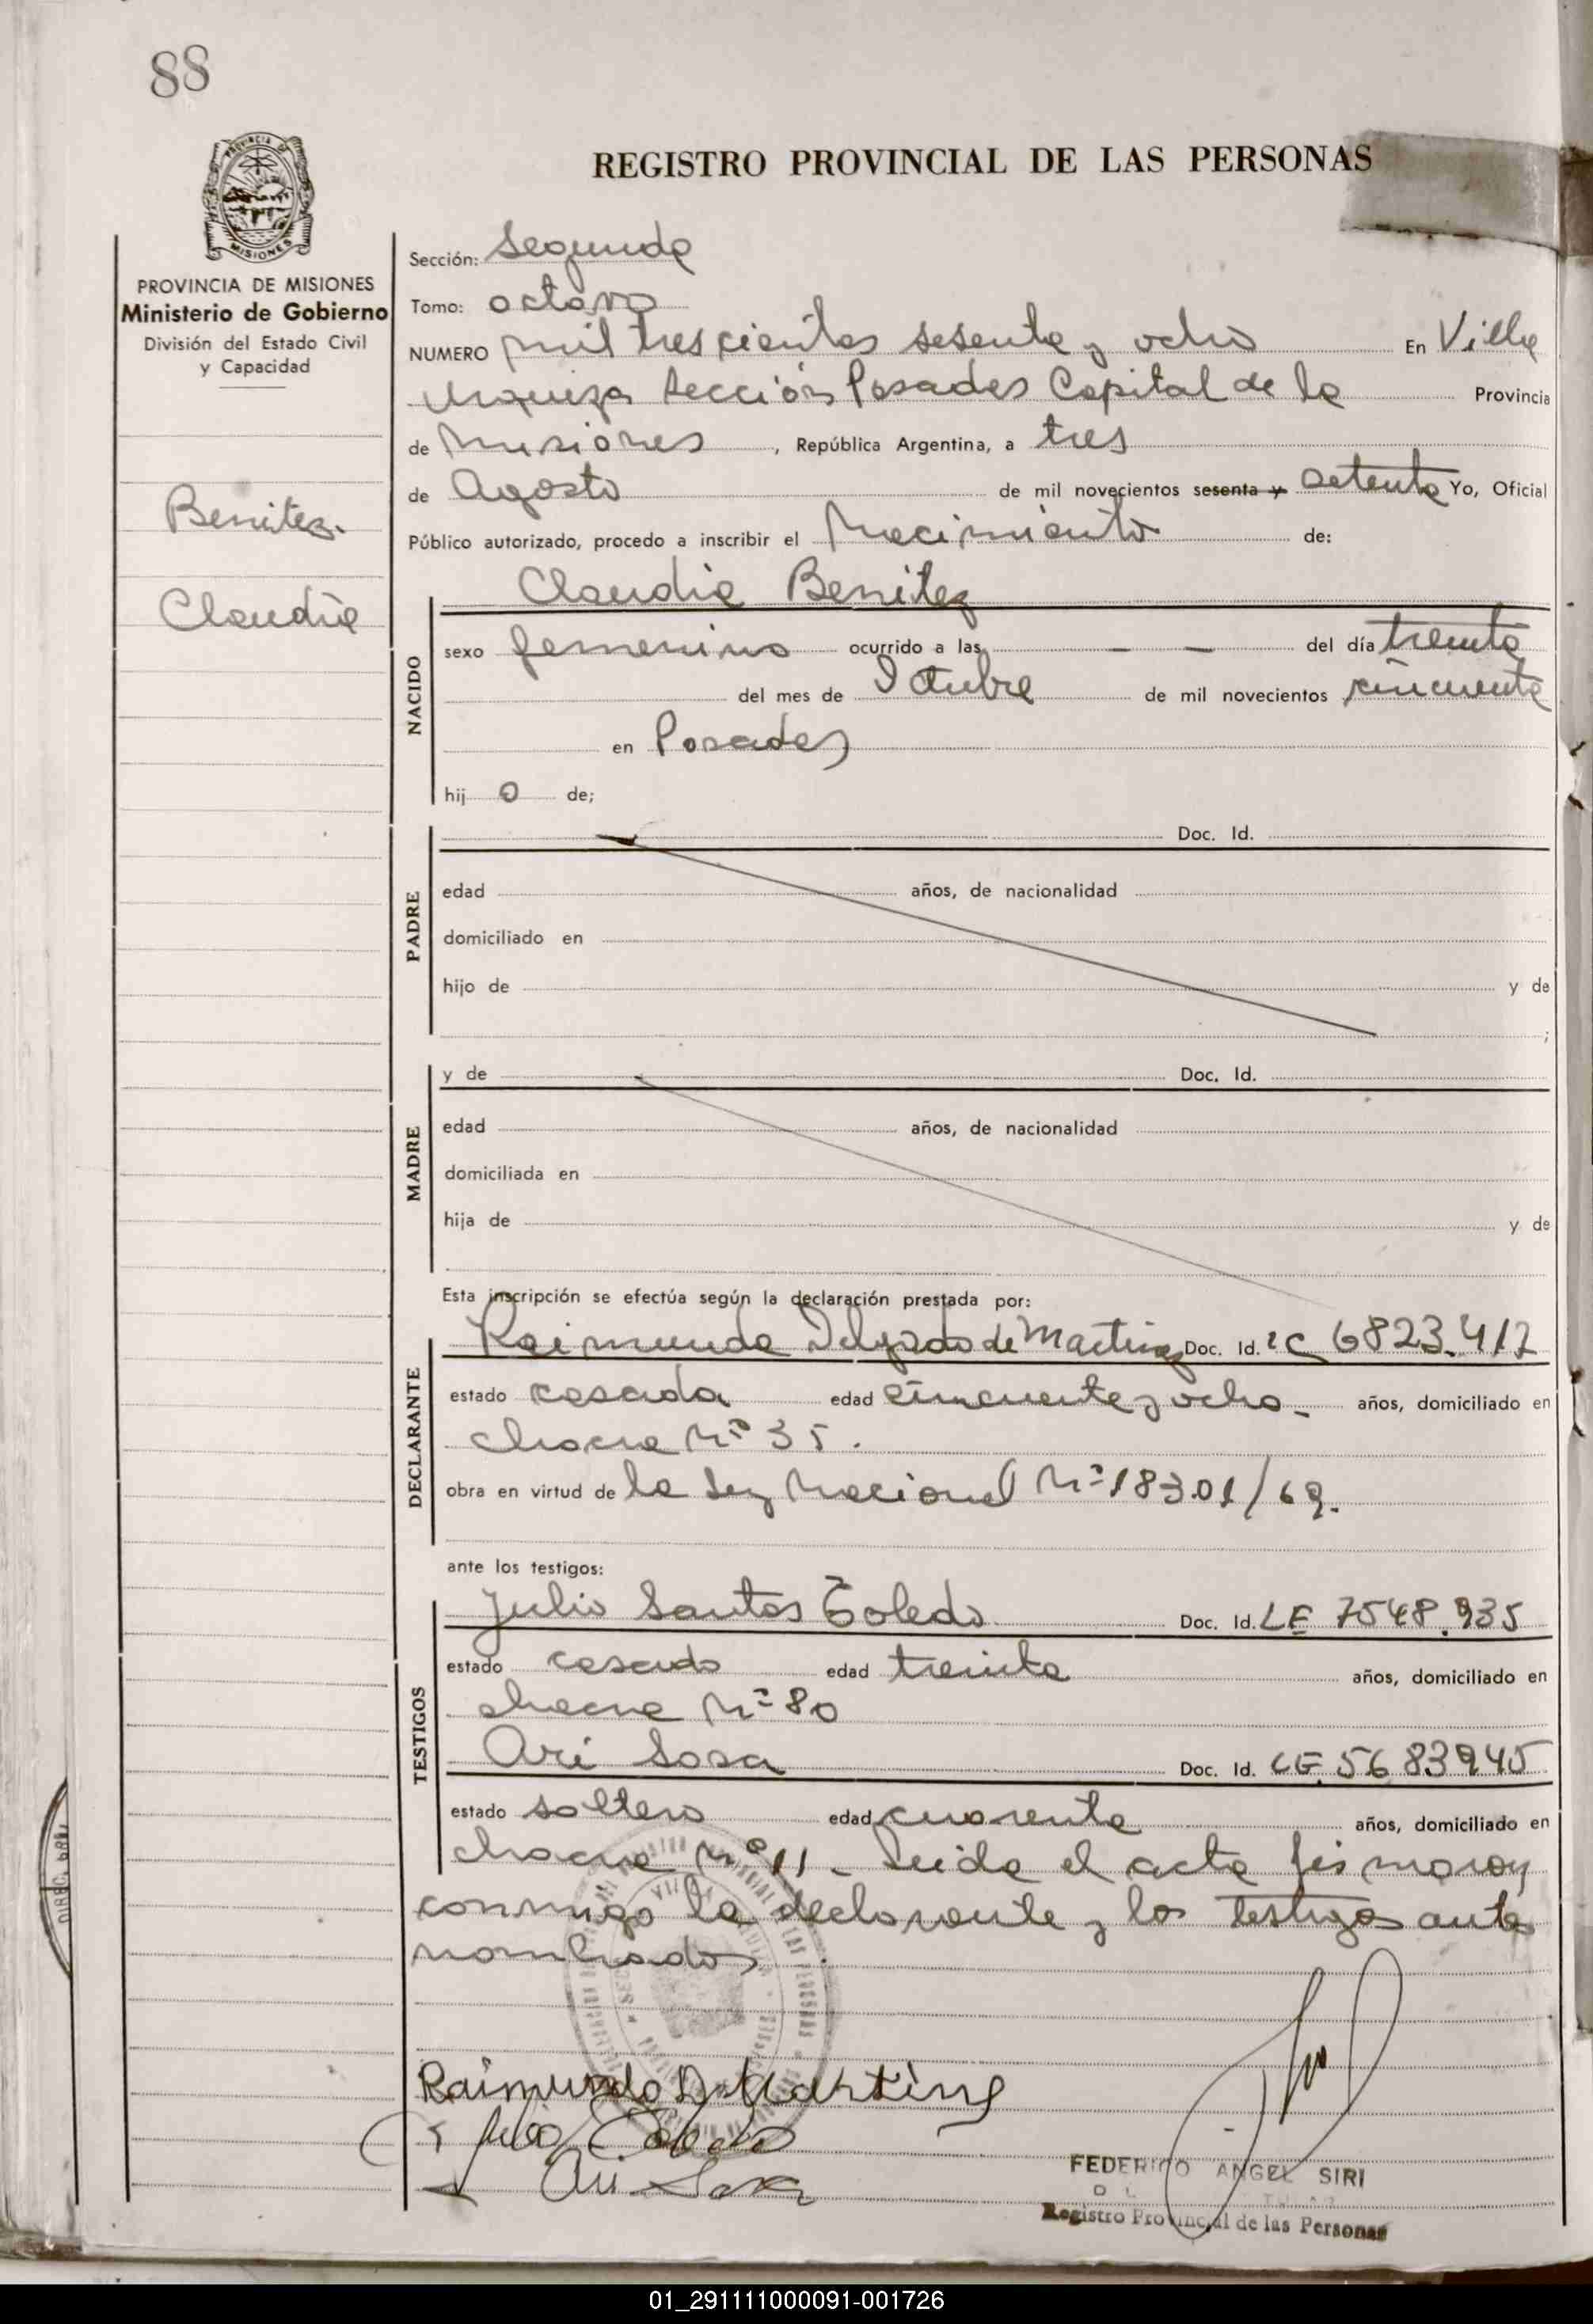 88
PROVINCIA DE
MISIONES
REGISTRO PROVINCIAL DE LAS PERSONAS
PROVINCIA DE MISIONES
Ministerio de Gobierno
División del Estado Civil
y Capacidad
Benitez.
Claudia
Sección: Segunda
Tomo: octavo
NUMERO mil trescientos sesenta y ocho En Villa
Urquiza Sección Posadas Capital de la Provincia
de Misiones, República Argentina, a tres
de Agosto de mil novecientos sesenta y setenta Yo, Oficial
Público autorizado, procedo a inscribir el Nacimiento de:
Claudia Benitez
NACIDO
sexo femenino ocurrido a las — — del día treinta
del mes de Octubre de mil novecientos cincuenta
en Posadas
hij o de;
PADRE
Doc. Id.
edad años, de nacionalidad
domiciliado en
hijo de y de
;
MADRE
y de Doc. Id.
edad años, de nacionalidad
domiciliada en
hija de y de
Esta inscripción se efectúa según la declaración prestada por:
DECLARANTE
Raimunda Delgado de Martinez Doc. Id. LC 6823.412
estado casada edad cincuenta y ocho - años, domiciliado en
chacra Nº 35.
obra en virtud de la Ley Nacional Nº 18301/69.
ante los testigos:
TESTIGOS
Julio Santos Toledo Doc. Id. LE 7548.935
estado casado edad treinta años, domiciliado en
chacra Nº 80
Ari Sosa Doc. Id. LE 5683945
estado soltero edad cuarenta años, domiciliado en
chacra Nº 11 - Leida el acta firmaron
conmigo la declarante y los testigos antes
nombrados
Raimunda D. Martinez
Julio S. Toledo
Ari Sosa
FEDERICO ANGEL SIRI
Registro Provincial de las Personas
01_291111000091-001726